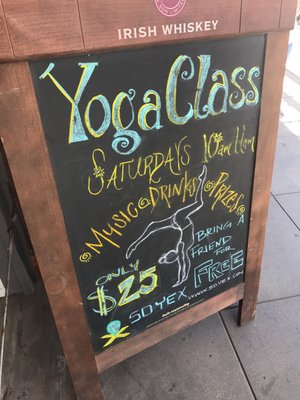 IRISH WHISKEY
Yoga Class
SATURDAYS 10am 11am
MUSIC DRINKS PRIZES
ONLY
$25
BRING A
FRIEND
FOR
FREE
SOYEX WWW.SOYEX.COM